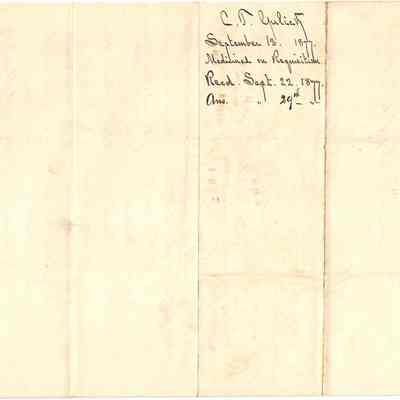 C. T.
September 12. 1877.
Medicines on Requisition.
Recd. Sept. 22. 1877.
Ans. " 29th "